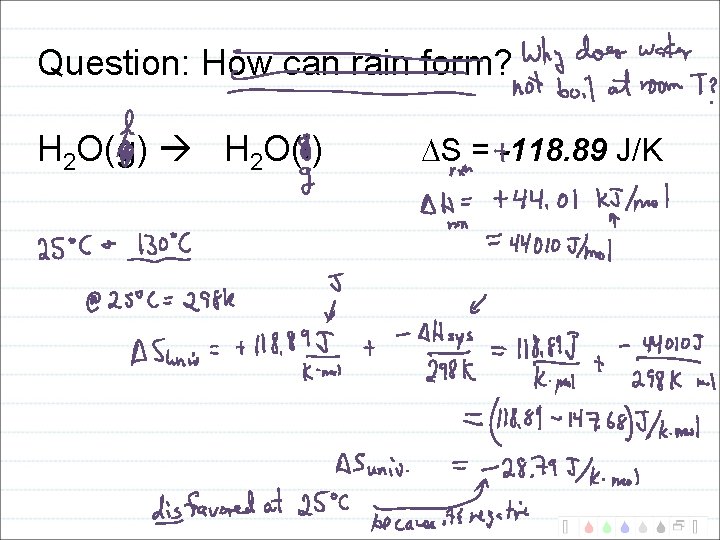 Question: How can rain form? Why does water
not boil at room T?
H₂O(g) → H₂O(l) ΔS = -118.89 J/K
l g + rxn
ΔH = +44.01 kJ/mol
rxn
= 44010 J/mol
25°C + 130°C
@ 25°C = 298K J
ΔSuniv = +118.89 J/K·mol + -ΔHsys/298K = 118.89 J/K·mol + -44010 J/298K mol
= (118.89 - 147.68) J/K·mol
ΔSuniv. = -28.79 J/K·mol
disfavored at 25°C because its negative